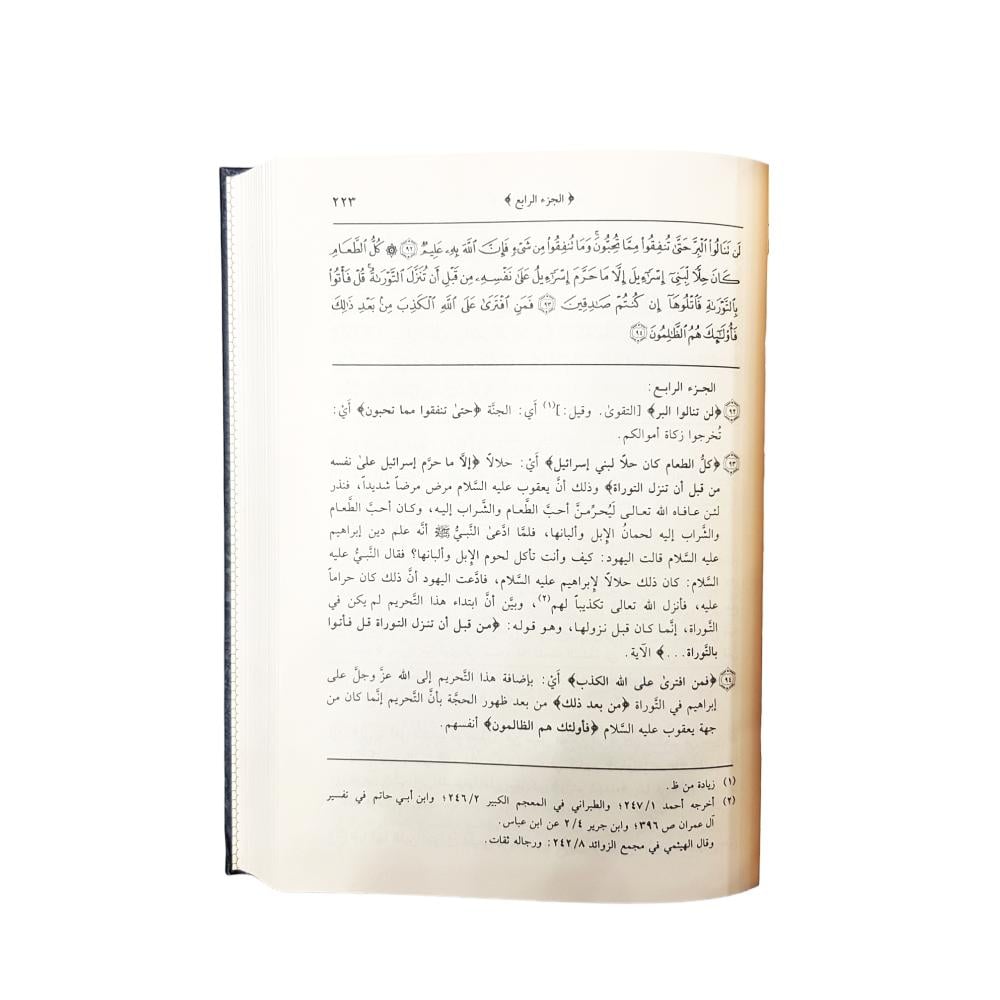 ﴿ الجزء الرابع ﴾ ٢٢٣
لَن نَنَالُوا۟ ٱلْبِرَّ حَتَّىٰ تُنفِقُوا۟ مِمَّا تُحِبُّونَ ۚ وَمَا تُنفِقُوا۟ مِن شَىْءٍ فَإِنَّ ٱللَّهَ بِهِۦ عَلِيمٌ ﴿٩٢﴾ ۞ كُلُّ ٱلطَّعَامِ
كَانَ حِلًّا لِّبَنِىٓ إِسْرَٰٓءِيلَ إِلَّا مَا حَرَّمَ إِسْرَٰٓءِيلُ عَلَىٰ نَفْسِهِۦ مِن قَبْلِ أَن تُنَزَّلَ ٱلتَّوْرَىٰةُ ۗ قُلْ فَأْتُوا۟
بِٱلتَّوْرَىٰةِ فَٱتْلُوهَآ إِن كُنتُمْ صَٰدِقِينَ ﴿٩٣﴾ فَمَنِ ٱفْتَرَىٰ عَلَى ٱللَّهِ ٱلْكَذِبَ مِنۢ بَعْدِ ذَٰلِكَ
فَأُو۟لَٰٓئِكَ هُمُ ٱلظَّٰلِمُونَ ﴿٩٤﴾
الجزء الرابع:
﴿٩٢﴾ ﴿لن تنالوا البر﴾ [التقوىٰ. وقيل:](١) أَي: الجنَّة ﴿حتىٰ تنفقوا مما تحبون﴾ أَيْ:
تُخرجوا زكاة أموالكم.
﴿٩٣﴾ ﴿كلُّ الطعام كان حلًا لبني إسرائيل﴾ أَيْ: حلالاً ﴿إلَّا ما حرَّم إسرائيل علىٰ نفسه
من قبل أن تنزل التوراة﴾ وذلك أنَّ يعقوب عليه السَّلام مرض مرضاً شديداً، فنذر
لئن عافاه الله تعالى لَيُحرِّمنَّ أحبَّ الطَّعام والشَّراب إليه، وكان أحبَّ الطَّعام
والشَّراب إليه لحمانُ الإِبل وألبانها، فلمَّا ادَّعىٰ النَّبيُّ ﷺ أنَّه علم دين إبراهيم
عليه السَّلام قالت اليهود: كيف وأنت تأكل لحوم الإِبل وألبانها؟ فقال النَّبيُّ عليه
السَّلام: كان ذلك حلالاً لإِبراهيم عليه السَّلام، فادَّعت اليهود أنَّ ذلك كان حراماً
عليه، فأنزل الله تعالى تكذيباً لهم(٢)، وبيَّن أنَّ ابتداء هذا التَّحريم لم يكن في
التَّوراة، إنَّما كان قبل نزولها، وهو قوله: ﴿من قبل أن تنزل التوراة قل فأتوا
بالتَّوراة...﴾ الآية.
﴿٩٤﴾ ﴿فمن افترىٰ على الله الكذب﴾ أَيْ: بإضافة هذا التَّحريم إلى الله عزَّ وجلَّ على
إبراهيم في التَّوراة ﴿من بعد ذلك﴾ من بعد ظهور الحجَّة بأنَّ التَّحريم إنَّما كان من
جهة يعقوب عليه السَّلام ﴿فأولئك هم الظالمون﴾ أنفسهم.
(١) زيادة من ظ.
(٢) أخرجه أحمد ٢٤٧/١؛ والطبراني في المعجم الكبير ٢٤٦/٢؛ وابن أبي حاتم في تفسير
آل عمران ص ٣٩٦؛ وابن جرير ٢/٤ عن ابن عباس.
وقال الهيثمي في مجمع الزوائد ٢٤٢/٨: ورجاله ثقات.